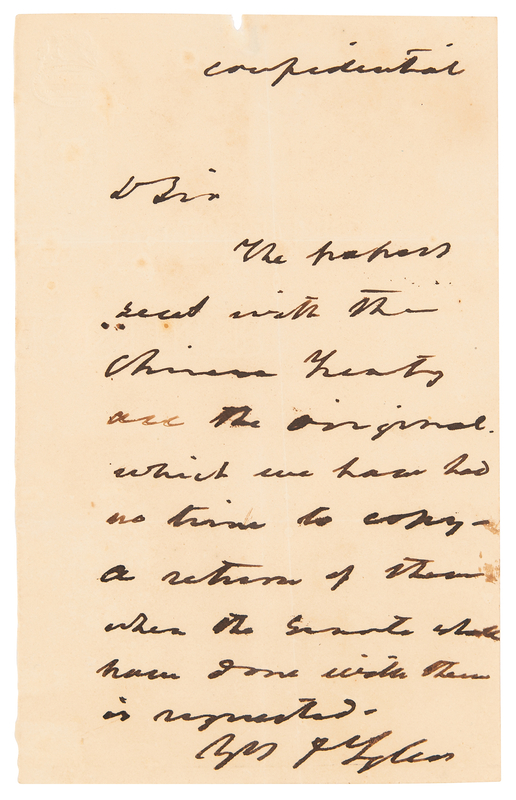 confidential
D Sir
The papers
sent with the
Chinese Treaty
are the original.
which we have had
no time to copy-
a return of them
when the Senate shall
have done with them
is requested-
Yrs J Tyler